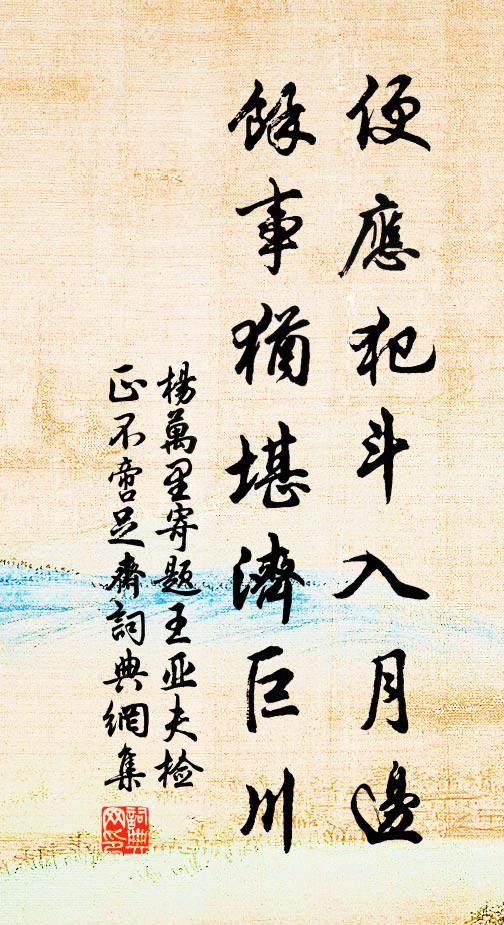 便應犯斗入月邊
餘事猶堪濟巨川
楊萬里寄題王亚夫检
正不啻足齋詞典網集
詞典
网印